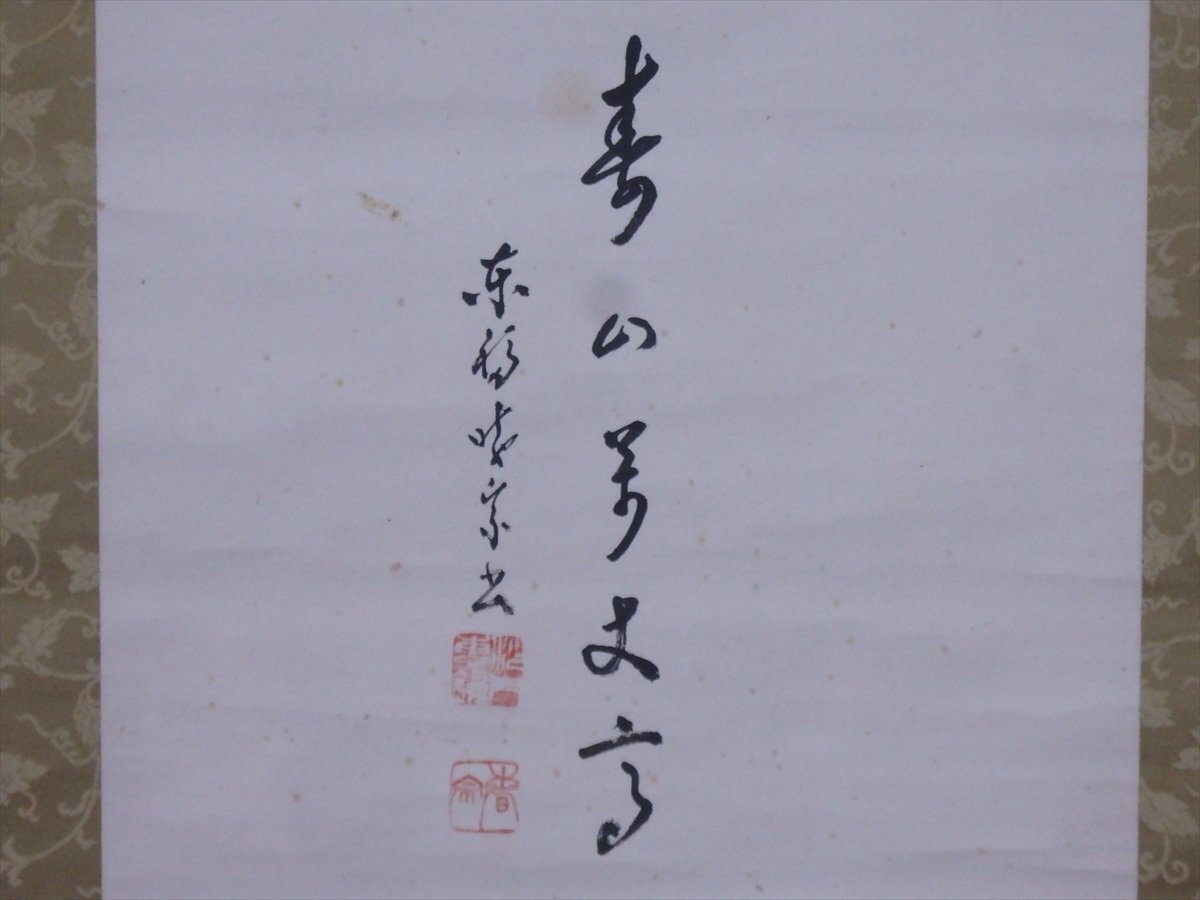 寿山万丈高
東福
宗書